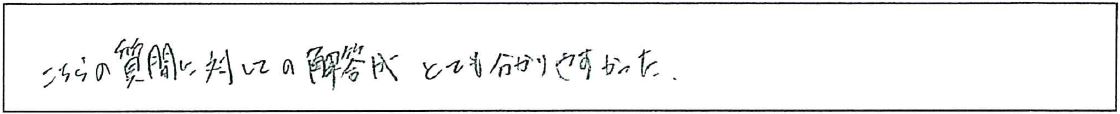 こちらの質問に対しての解答が とても分かりやすかった.